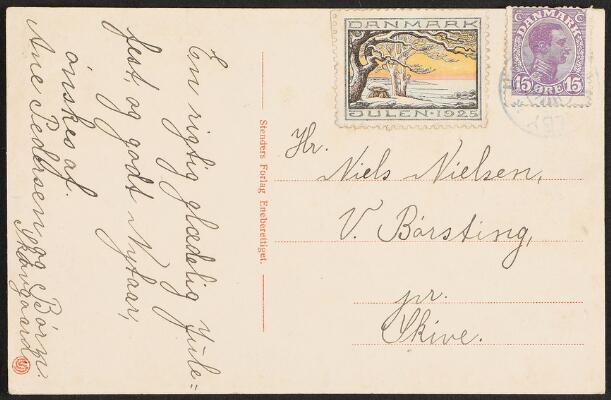 DANMARK
JULEN · 1925
DANMARK
15 ØRE 15
En rigtig glædelig Jule=
fest og godt Nytaar,
ønskes af.
Ane Pedersen og Børn.
Skovgaard
Stenders Forlag Eneberettiget.
Hr.
Niels Nielsen,
V. Børsting,
pr.
Skive.